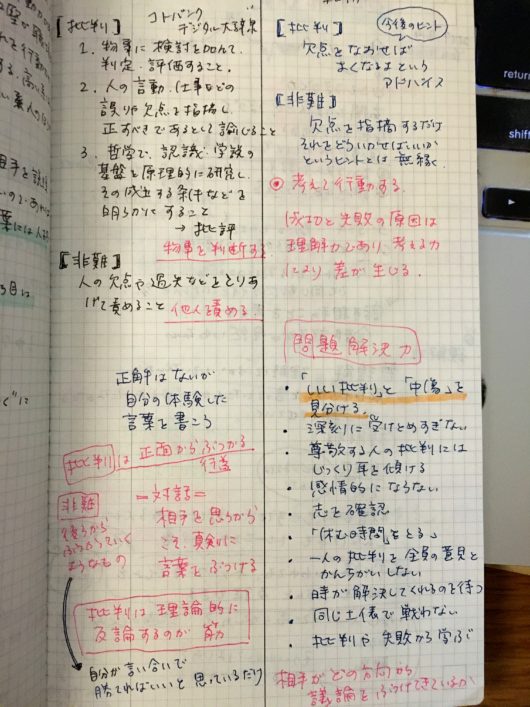 【批判】 コトバンク
デジタル大辞泉
1. 物事に検討を加えて、
判定・評価すること。
2. 人の言動・仕事などの
誤りや欠点を指摘し、
正すべきであるとして論じること
3. 哲学で、認識・学説の
基盤を原理的に研究し、
その成立する条件などを
明らかにすること
→批評
物事を判断する
【非難】
人の欠点や過失などをとりあ
げて責めること
他人を責める。
正解はないが
自分の体験した
言葉を書こう
批判は正面からぶつかる
行為
非難
後ろから
ぶつかっていく
ようなもの
=対話=
相手を思うから
こそ、真剣に
言葉をぶつける
批判は理論的に
反論するのが筋
自分が言い合いで
勝てればいいと思っているだけ
【批判】
今後のヒント
欠点をなおせば
よくなるよという
アドバイス
【非難】
欠点を指摘するだけ
それをどういかせばいいか
というヒントとは無縁く
◎考えて行動する。
成功と失敗の原因は
理解力であり、考える力
により差が生じる。
問題解決力
・「いい批判」と「中傷」を
見分ける。
・深刻に受けとめすぎない
・尊敬する人の批判には
じっくり耳を傾ける
・感情的にならない
・志を確認
・「休む時間」をとる。
・一人の批判を全員の意見と
かんちがいしない
・時が解決してくれるのを待つ
・同じ土俵で戦わない
・批判や失敗から学ぶ
相手がどの方向から
議論をぶつけてきているか
return
shift